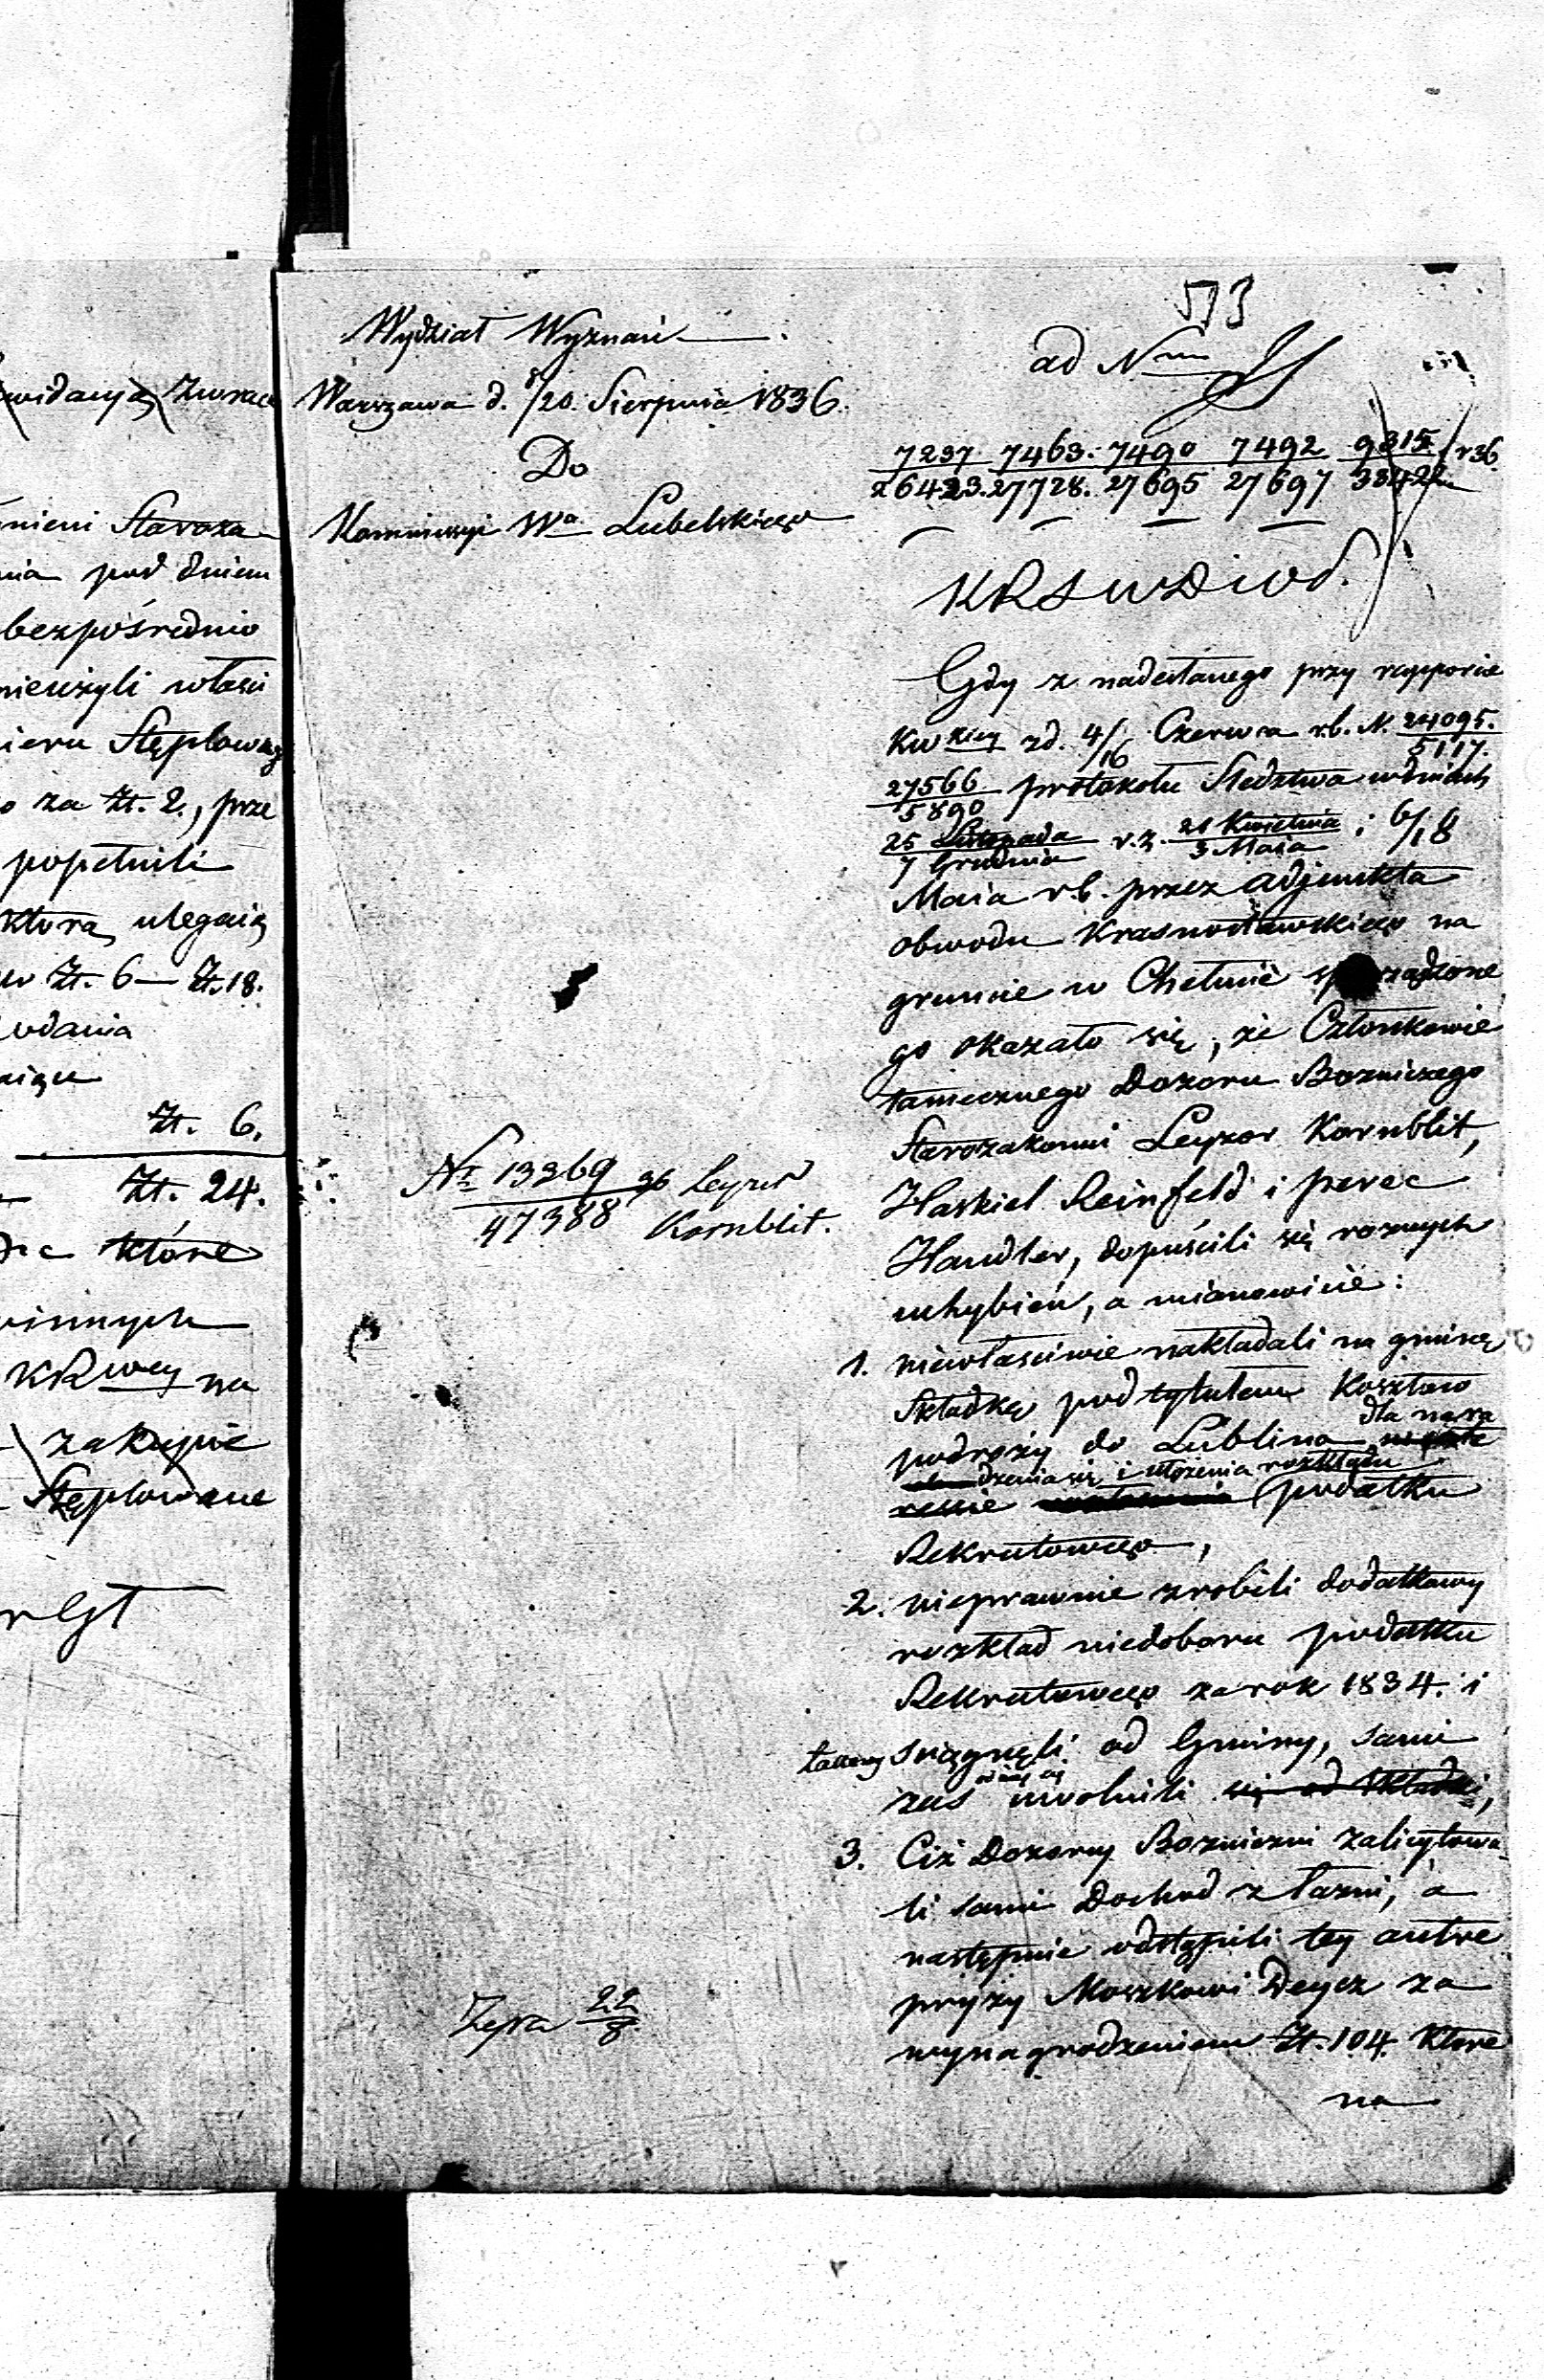 widacyą zwraca
mieni Staroza
nia pod dniem
bezpośrednio
nieużyli właści
ieru Stęplowego
o za Zł. 2., prze
popełnili
którą ulegaią
Zł. 6 — Zł. 18.
odania
Zł. 6.
Zł. 24.
które
winnych
KRwey na
zakupie
Stęplowane
573
Wydział Wyznań
Warszawa d. 8/20. Sierpnia 1836.
Do
Kommissyi Wa Lubelskiego
ad Nrum
7237 7463. 7490 7492 9315 / r36
26423. 27728. 27695 27697 33422
KRSWDiWOP.
Gdy z nadesłanego przy rapporcie
KW zd. 4/16 Czerwca r.b. N. 24095./5117.
27566/5890 protokołu Śledztwa w dniach
25 Listopada/7 Grudnia r.z. 21 Kwietnia/3 Maia i 6/18
Maia r.b. przez Adjunkta
obwodu Krasnostawskiego na
gruncie w Chełmie sporządzone
go okazało się, że Członkowie
tamecznego Dozoru Bozniczego
Starozakonni Leyzor Kornblit,
Haskiel Reinfeld i Perec
Handler, dopuścili się roznych
uchybień, a mianowicie:
No 13369/47388 36 Leyzor
Kornblit.
1. niewłasciwie nakładali na gminę
Składkę pod tytułem Kosztow
podroży do Lublina dla nara
dzenia się i ułożenia rozkładu
podatku
Rekrutowego,
2. nieprawnie zrobili dodatkowy
rozkład niedoboru podatku
Rekrutowego za rok 1834. i
takowy sciągnęli od Gminy, sami
zas uwolnili się od składki,
3. Ciż Dozorcy Bozniczni zalicytowa
li sami Dochod z łazni, a
następnie odstąpili tey antre
pryzy Moszkowi Deycz za
wynagrodzeniem Zł. 104. które
na
22/8